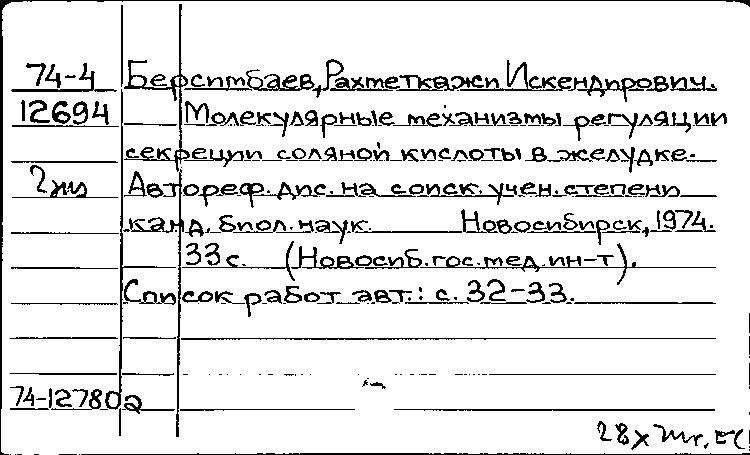 74-4 Берсимбаев, Рахметкажи Искендирович.
12694 Молекулярные механизмы регуляции
секреции соляной кислоты в желудке.
2 экз Автореф. дис. на соиск. учен. степени
канд. биол. наук. Новосибирск, 1974.
33 с. (Новосиб. гос. мед. ин-т).
Список работ авт.: с. 32-33.
74-12780а
28 х